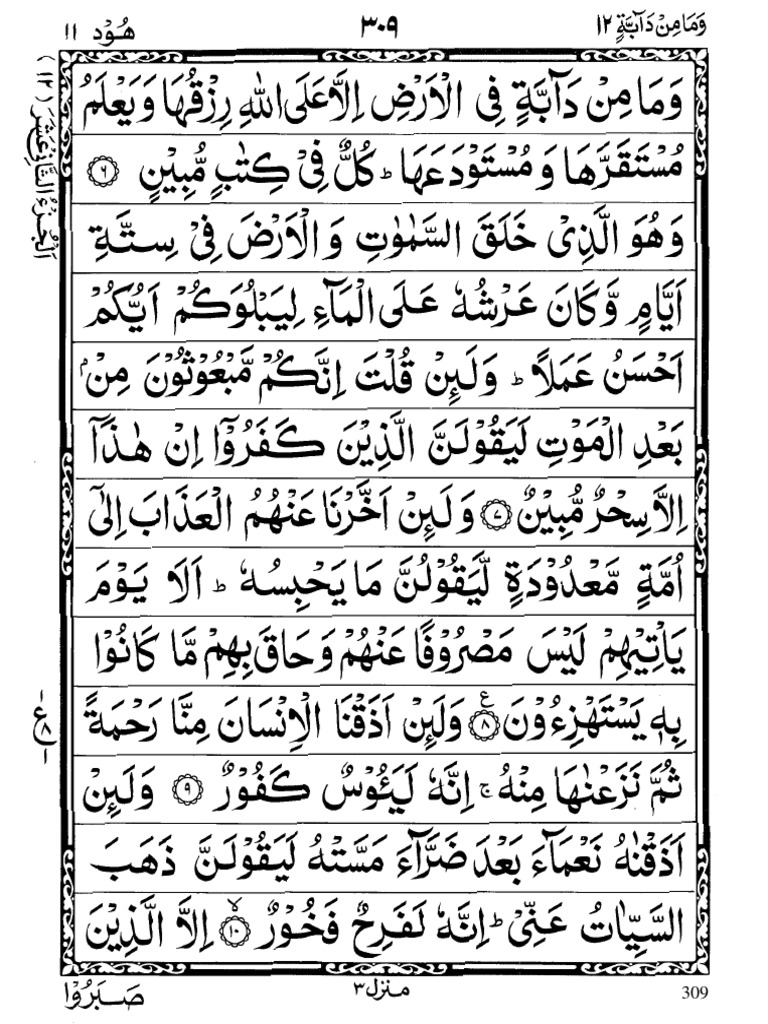 وَمَا مِنْ دَآبَّةٍ ١٢
٣٠٩
هُوْد ١١
اَلْجُزْءُ الثَّانِیْ عَشَرَ (١٢)
وَمَا مِنْ دَآبَّةٍ فِی الْاَرْضِ اِلَّا عَلَی اللّٰهِ رِزْقُهَا وَیَعْلَمُ
مُسْتَقَرَّهَا وَ مُسْتَوْدَعَهَا ؕ كُلٌّ فِیْ كِتٰبٍ مُّبِیْنٍ ۝۶
وَهُوَ الَّذِیْ خَلَقَ السَّمٰوٰتِ وَ الْاَرْضَ فِیْ سِتَّةِ
اَیَّامٍ وَّكَانَ عَرْشُهٗ عَلَی الْمَآءِ لِیَبْلُوَكُمْ اَیُّكُمْ
اَحْسَنُ عَمَلًا ؕ وَلَئِنْ قُلْتَ اِنَّكُمْ مَّبْعُوْثُوْنَ مِنْۢ
بَعْدِ الْمَوْتِ لَیَقُوْلَنَّ الَّذِیْنَ كَفَرُوْۤا اِنْ هٰذَاۤ
اِلَّا سِحْرٌ مُّبِیْنٌ ۝۷ وَلَئِنْ اَخَّرْنَا عَنْهُمُ الْعَذَابَ اِلٰۤی
اُمَّةٍ مَّعْدُوْدَةٍ لَّیَقُوْلُنَّ مَا یَحْبِسُهٗ ؕ اَلَا یَوْمَ
یَاْتِیْهِمْ لَیْسَ مَصْرُوْفًا عَنْهُمْ وَحَاقَ بِهِمْ مَّا كَانُوْا
بِهٖ یَسْتَهْزِءُوْنَ ۝۸ ع وَلَئِنْ اَذَقْنَا الْاِنْسَانَ مِنَّا رَحْمَةً
ثُمَّ نَزَعْنٰهَا مِنْهُ ۚ اِنَّهٗ لَیَـُٔوْسٌ كَفُوْرٌ ۝۹ وَلَئِنْ
اَذَقْنٰهُ نَعْمَآءَ بَعْدَ ضَرَّآءَ مَسَّتْهُ لَیَقُوْلَنَّ ذَهَبَ
السَّیِّاٰتُ عَنِّیْ ؕ اِنَّهٗ لَفَرِحٌ فَخُوْرٌ ۝۱۰ۙ اِلَّا الَّذِیْنَ
309
منزل ٣
صَبَرُوْا